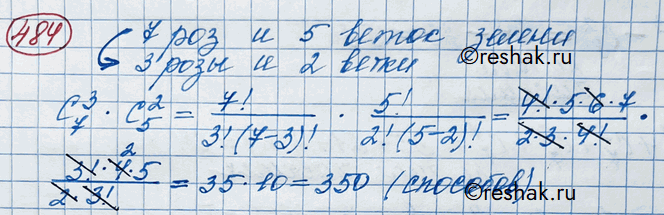 484
7 роз и 5 веток зелени
3 розы и 2 ветки
©reshak.ru
C₇³ · C₅² = 7!/(3!(7-3)!) · 5!/(2!(5-2)!) = (4!·5·6·7)/(2·3·4!) ·
(3!·4·5)/(2·3!) 2 = 35·10 = 350 (способов)
©reshak.ru